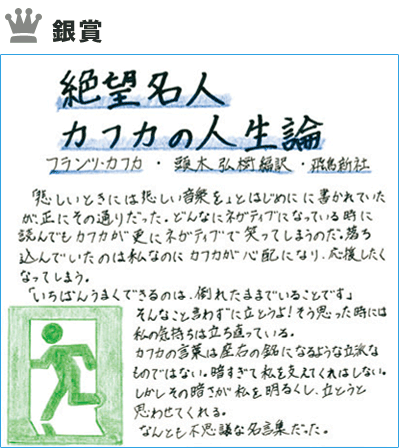 銀賞
絶望名人
カフカの人生論
フランツ・カフカ・頭木弘樹編訳・飛鳥新社
「悲しいときには悲しい音楽を」とはじめにに書かれていた
が、正にその通りだった。どんなにネガティブになっている時に
読んでもカフカが更にネガティブで笑ってしまうのだ。落ち
込んでいたのは私なのにカフカが心配になり、応援したく
なってしまう。
「いちばんうまくできるのは、倒れたままでいることです」
そんなこと言わずに立とうよ!そう思った時には
私の気持ちは立ち直っている。
カフカの言葉は座右の銘になるような立派な
ものではない。暗すぎて私を支えてくれはしない。
しかしその暗さが私を明るくし、立とうと
思わせてくれる。
なんとも不思議な名言集だった。